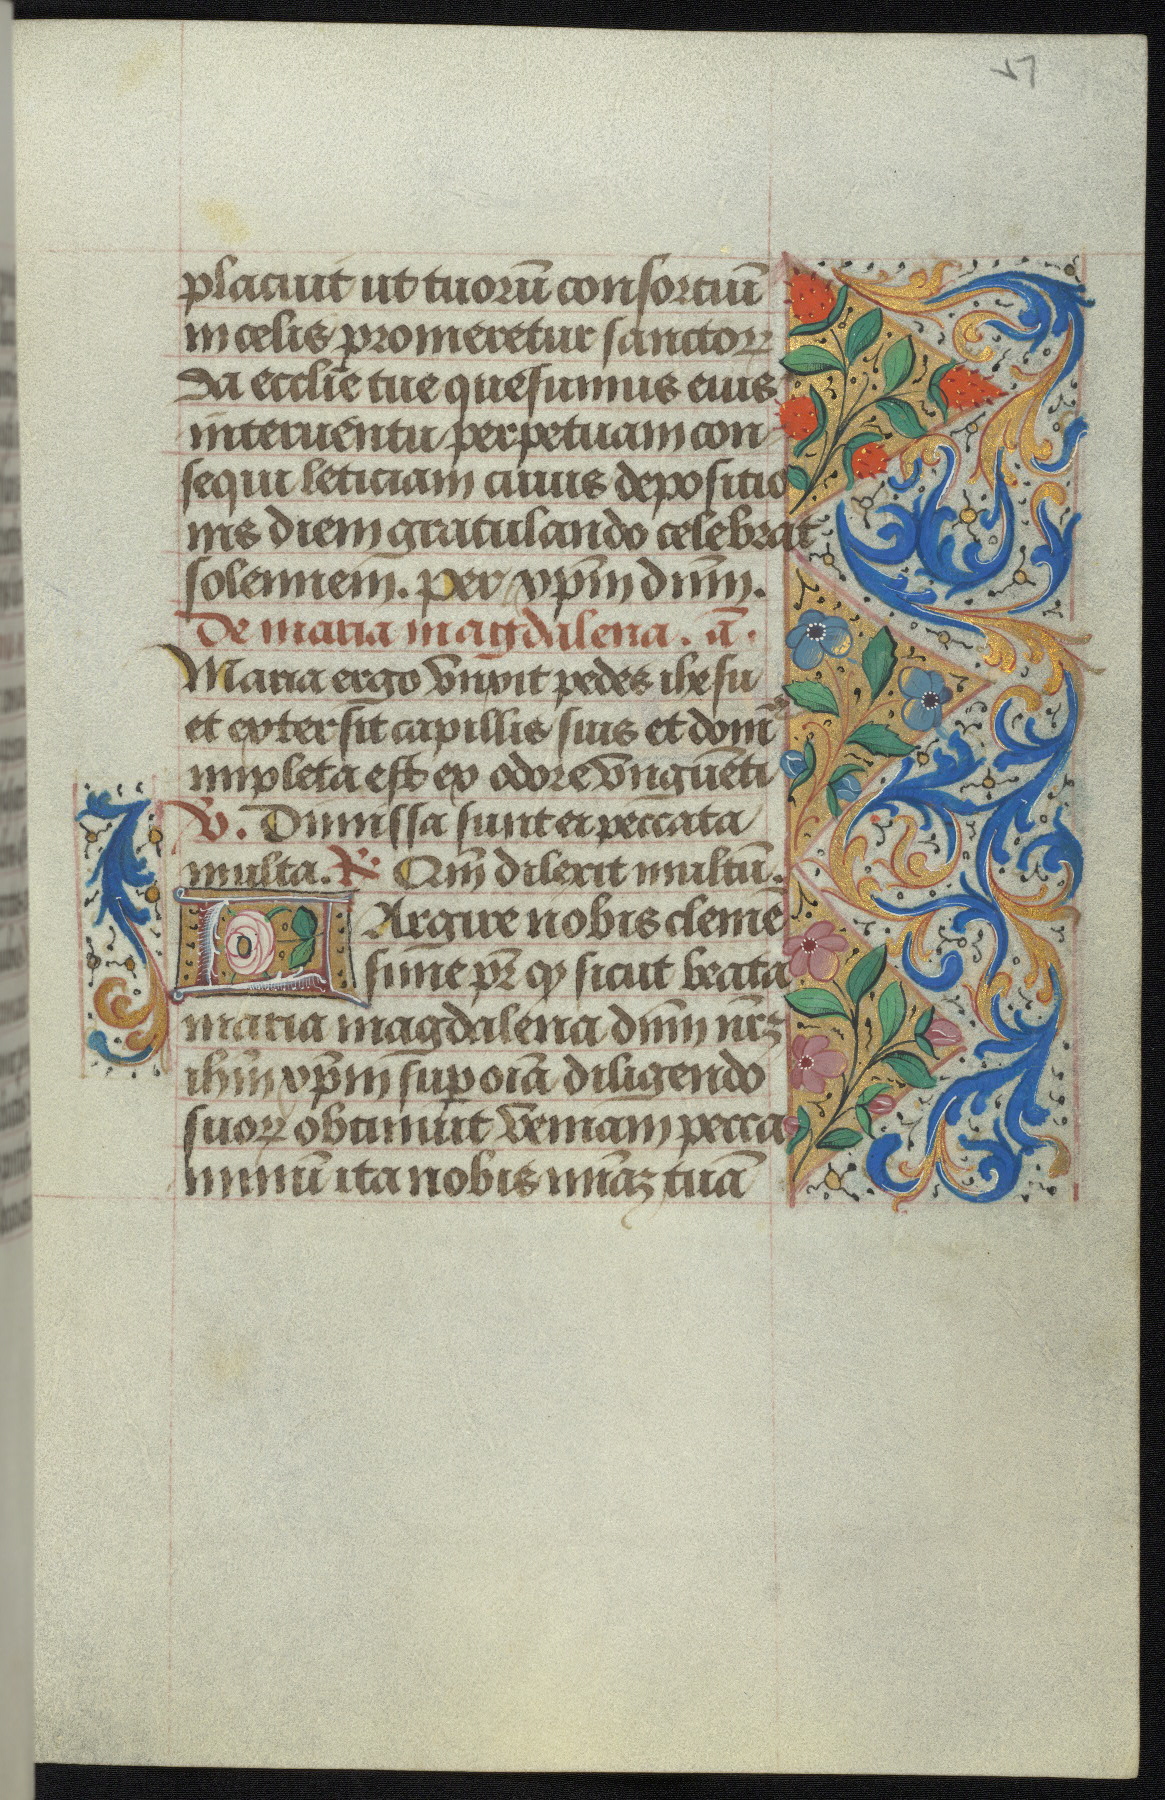 57
placuit ut tuorū consortiū
in celis promeretur sanctoꝝ
Da ecclīe tue quesumus eius
interuentu perpetuam con
sequi leticiam cuius depositio
nis diem gratulando celebrat
solennem. per xp̄m dn̄m.
De maria magdalena. ā.
Maria ergo vnxit pedes ihesu
et extersit capillis suis et dom̄
impleta est ex odore vngūeti
℣. Dimissa sunt ei peccata
multa. ℟. Qm̄ dilexit multū.
LArgire nobis clemē
sime pr̄ qꝫ sicut beata
maria magdalena dn̄m nr̄ꝫ
ihm̄ xp̄m sup oīa diligendo
suoꝝ obtinuit veniam pecca
minū ita nobis mīaꝫ tuā